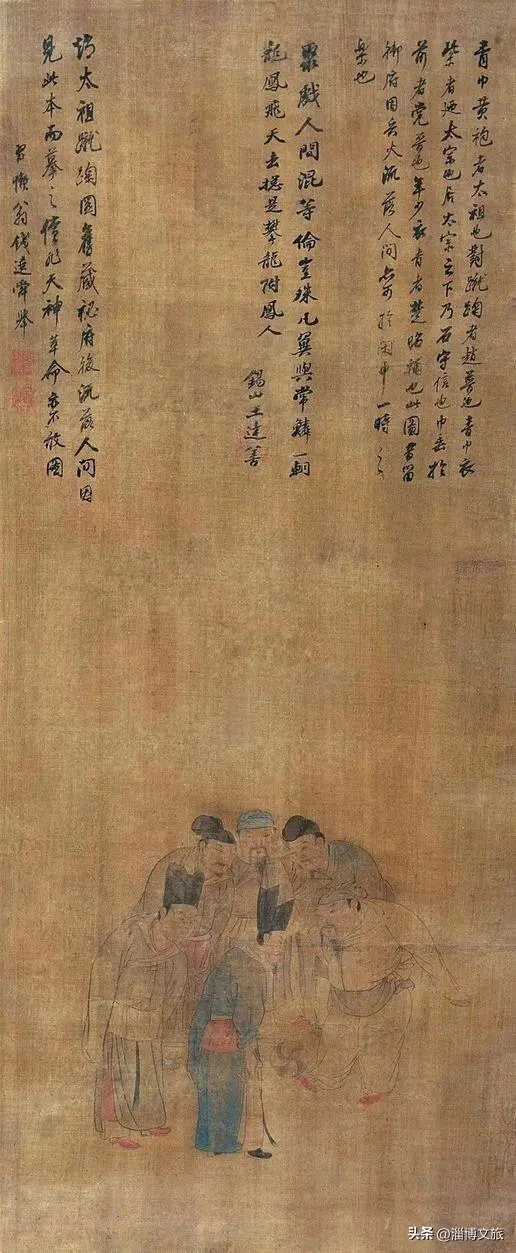 青巾黄袍者太祖也對蹴踘者趙普也青巾衣
紫者迺太宗也居太宗之下乃石守信也巾垂於
前者党晉也年少衣青者楚昭輔也此圖嘗留
御府因兵火流落人間亦可於閑中一時之
樂也
聚戲人間混等倫豈殊凡翼與常鱗一朝
龍鳳飛天去總是攀龍附鳳人
錫山王達善
太祖蹴踘圖舊藏秘府後流落人間因
見此本而摹之儻非天神革命亦不敢圖
習懶翁錢選舜舉
头条 @淄博文旅